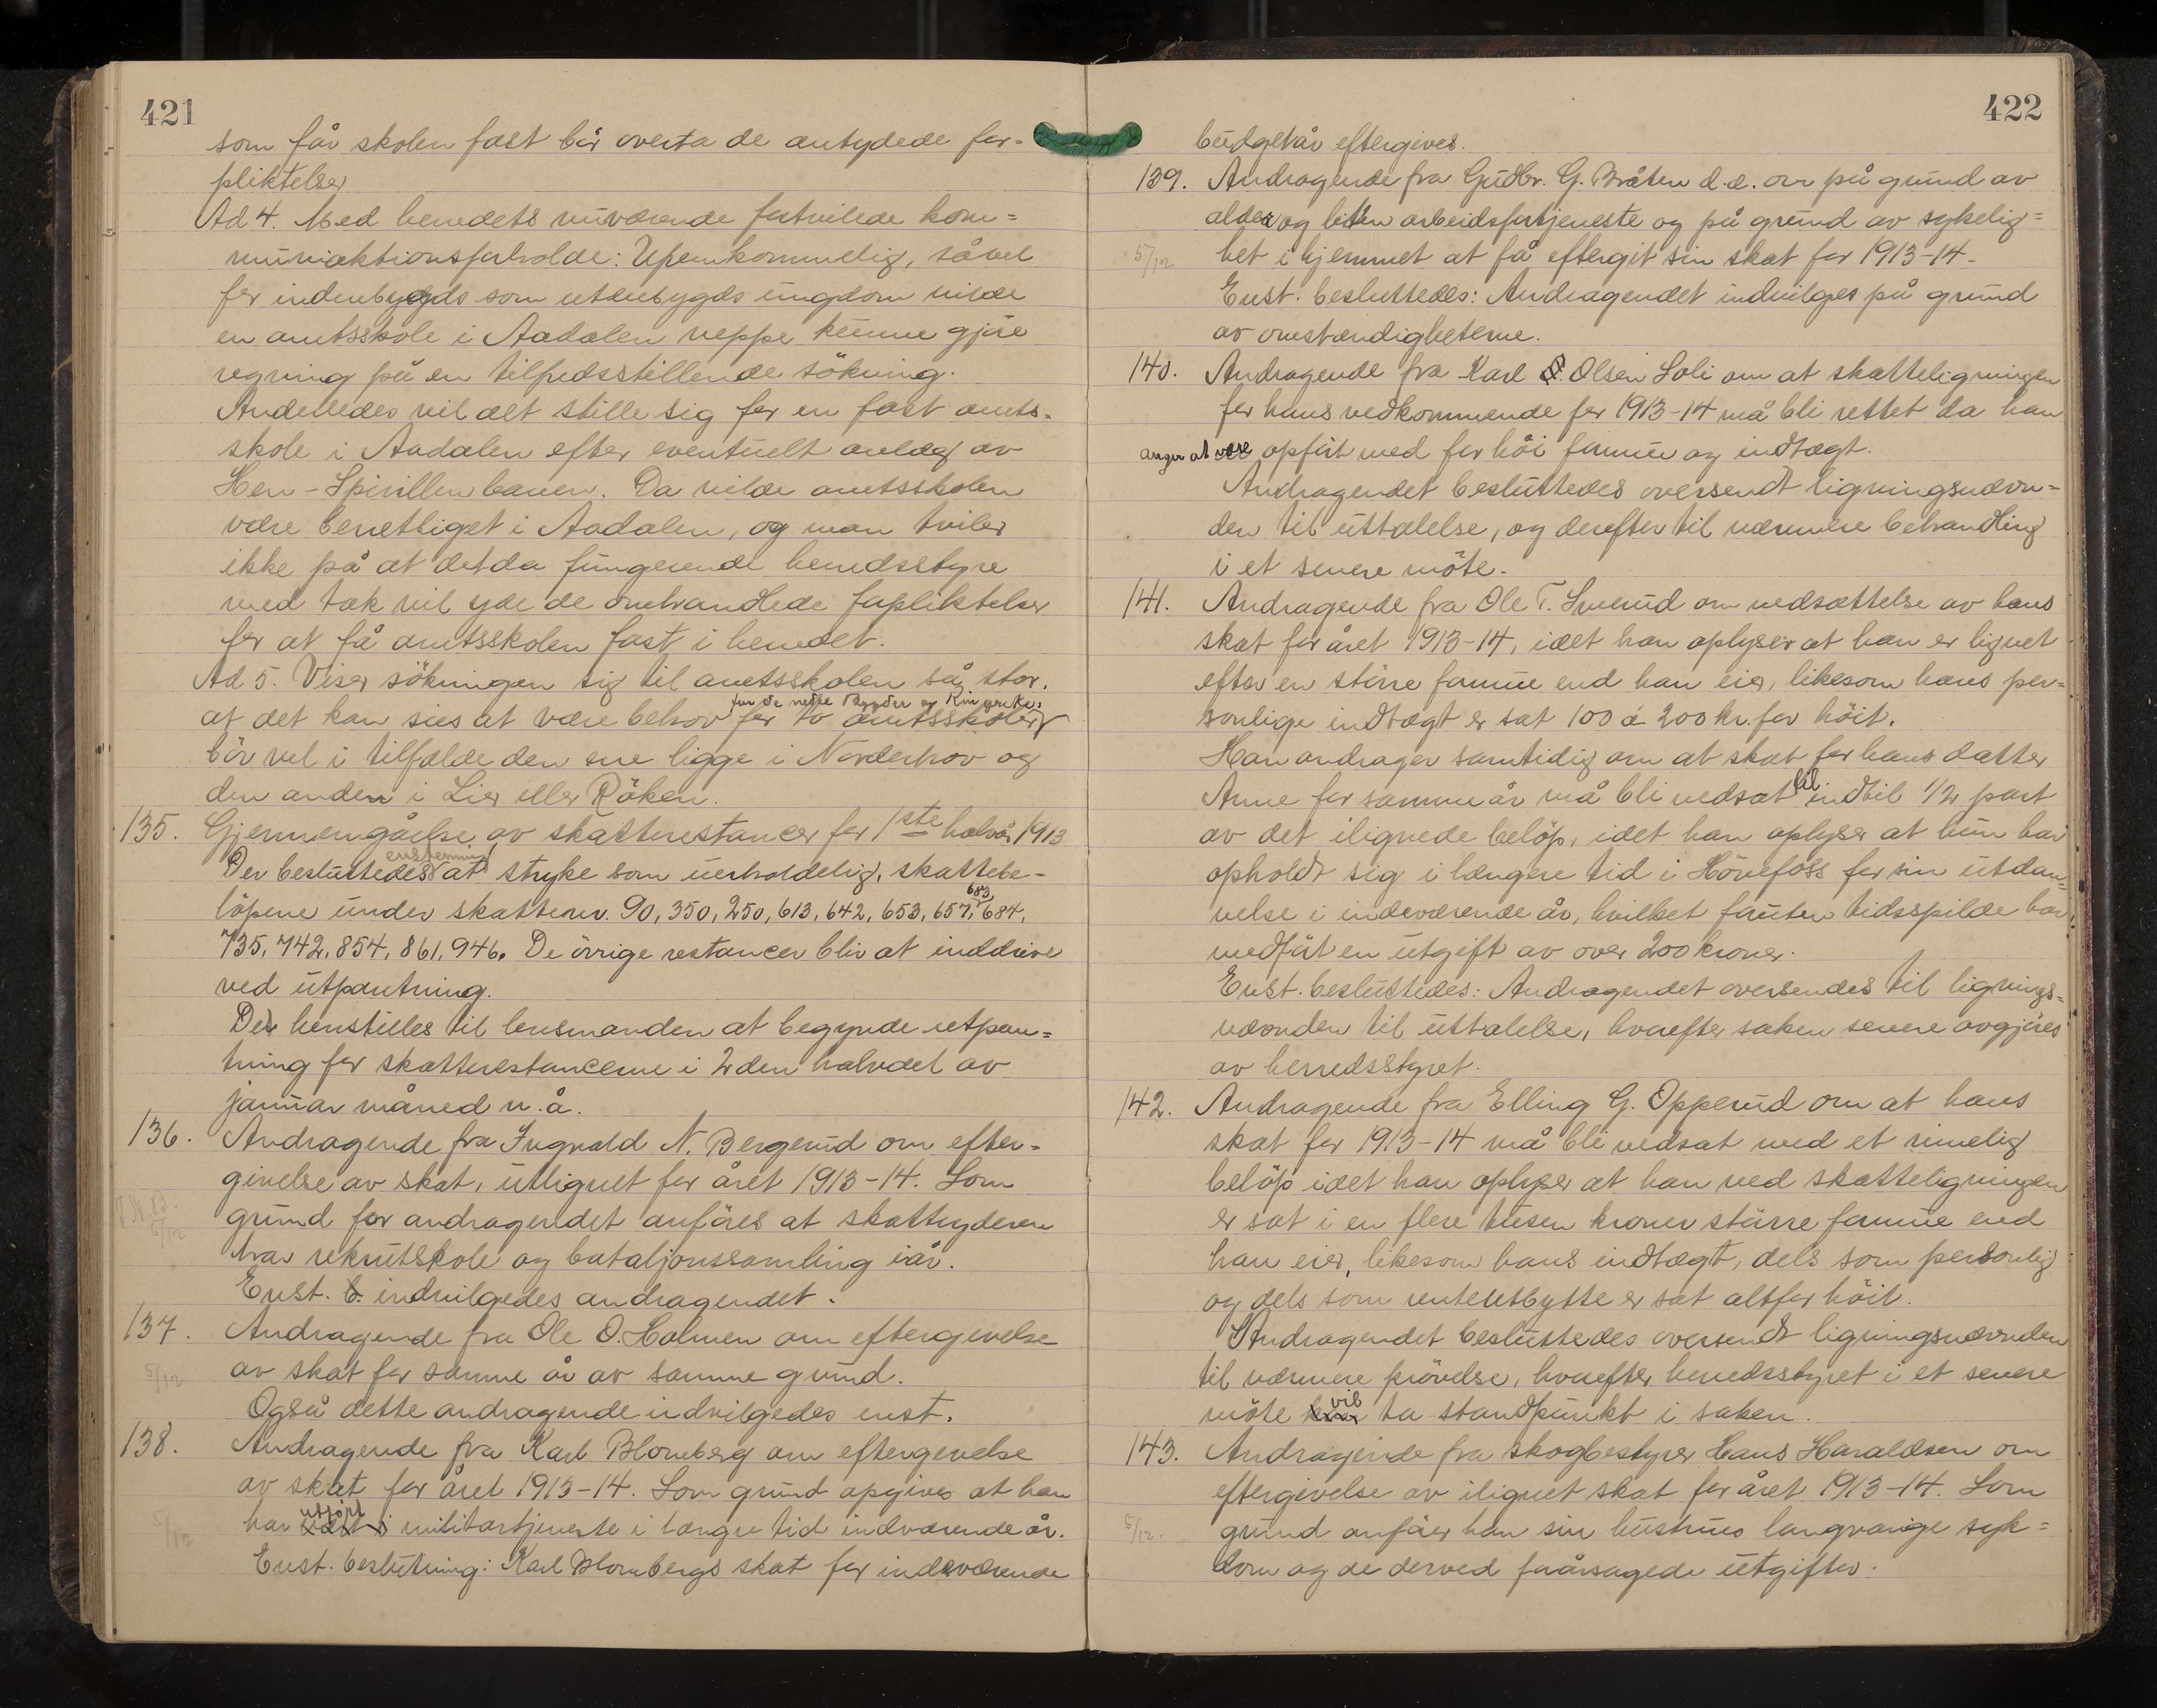 421
som får skolen fast bör overta de antydede for-
pliktelser
Ad 4. Med herredets nuværende fortvilede kom=
muniaktionsforholde: Upaakommelig, såvel
for indenbygds som utenbygds ungdom vilde
en amtsskole i Aadalen neppe kunne gjöre
regning på en tilfredsstillende sökning.
Anderledes vil det stille sig for en fast amts-
skole i Aadalen efter eventuelt anlæg av
Hen-Spirillenbanen. Da vilde amtsskolen
være berettiget i Aadalen, og man tviler
ikke på at det da fungerende herredsstyre
med tak vil yde de omhandlede forpliktelser
for at få amtsskolen fast i herredet.
Ad 5. Viser sökningen sig til amtsskolen så stor,
for de nedre Bygder og Ringerike,
at det kan sies at være behov for to amtsskoler
bör vel i tilfælde den ene ligge i Norderhov og
den anden i Lier eller Röken.
135. Gjennemgåelse av skatterestancer for 1ste halvår 1913
enstemmig
Der besluttedes at stryke som uerholdelig, skattebe-
683,
löpene under skattenr. 90, 350, 250, 613, 642, 653, 657, 684,
735, 742, 854, 861, 946. De övrige restancer blir at inddrive
ved utpantning.
Det henstilles til lensmanden at begynde utpan=
tning for skatterestancerne i 2den halvdel av
januar måned n.å.
136. Andragende fra Ingvald N. Bergerud om efter-
givelse av skat, utlignet for året 1913-14. Som
grund for andragendet anföres at skatteyderen
5/12
har rekrutskole og bataljonssamling iår.
Enst. b. indvilgedes andragendet.
137. Andragende fra Ole O. Holmen om eftergivelse
5/12
av skat for samme år av samme grund.
Også dette andragende indvilgedes enst.
138. Andragende fra Karl Blomberg om eftergivelse
av skat for året 1913-14. Som grund opgives at han
utfört
5/12
har militærtjeneste i længre tid indværende år.
Enst. beslutning: Karl Blombergs skat for indeværende
422
budgetår eftergives.
139. Andragende fra Gudbr. G. Bråten d.æ. om på grund av
alder og liten arbeidsfortjeneste og på grund av sykelig=
5/12
het i hjemmet at få eftergit sin skat for 1913-14.
Enst. besluttedes: Andragendet indvilges på grund
av omstændigheterne.
140. Andragende fra Karl Olsen Soli om at skatteligningen
for hans vedkommende for 1913-14 må bli rettet da han
angir at være opfört med for höi formue og indtægt.
Andragendet besluttedes oversendt ligningsnævn-
den til uttalelse, og derefter til nærmere behandling
i et senere möte.
141. Andragende fra Ole T. Smerud om nedsættelse av hans
skat for året 1913-14, idet han oplyser at han er lignet
efter en större formue end han eier, likesom hans per-
sonlige indtægt er sat 100 á 200 kr. for höit.
Han andrager samtidig om at skat for hans datter
til
Anne for samme år må bli nedsat indtil 1/2 part
av det ilignede belöp, idet han oplyser at hun har
opholdt sig i længere tid i Hönefoss for sin utdan=
nelse i indeværende år, hvilket foruten tidsspilde har
medfört en utgift av over 200 kroner.
Enst. besluttedes: Andragendet oversendes til lignings=
nævnden til uttalelse, hvorefter saken senere avgjöres
av herredsstyret.
142. Andragende fra Elling G. Opperud om at hans
skat for 1913-14 må bli nedsat med et rimelig
belöp idet han oplyser at han ved skatteligningen
er sat i en flere tusen kroner större formue end
han eier, likesom hans indtægt, dels som personlig
og dels som renteutbytte er sat altfor höit.
Andragendet besluttedes oversendt ligningsnævnden
til nærmere prövelse, hvorefter herredsstyret i et senere
vil
möte ta standpunkt i saken.
143. Andragende fra skogbestyrer Hans Haraldsen om
eftergivelse av ilignet skat for året 1913-14. Som
5/12.
grund anförer han sin hustrus langvarige syk=
dom og de derved foråsagede utgifter.